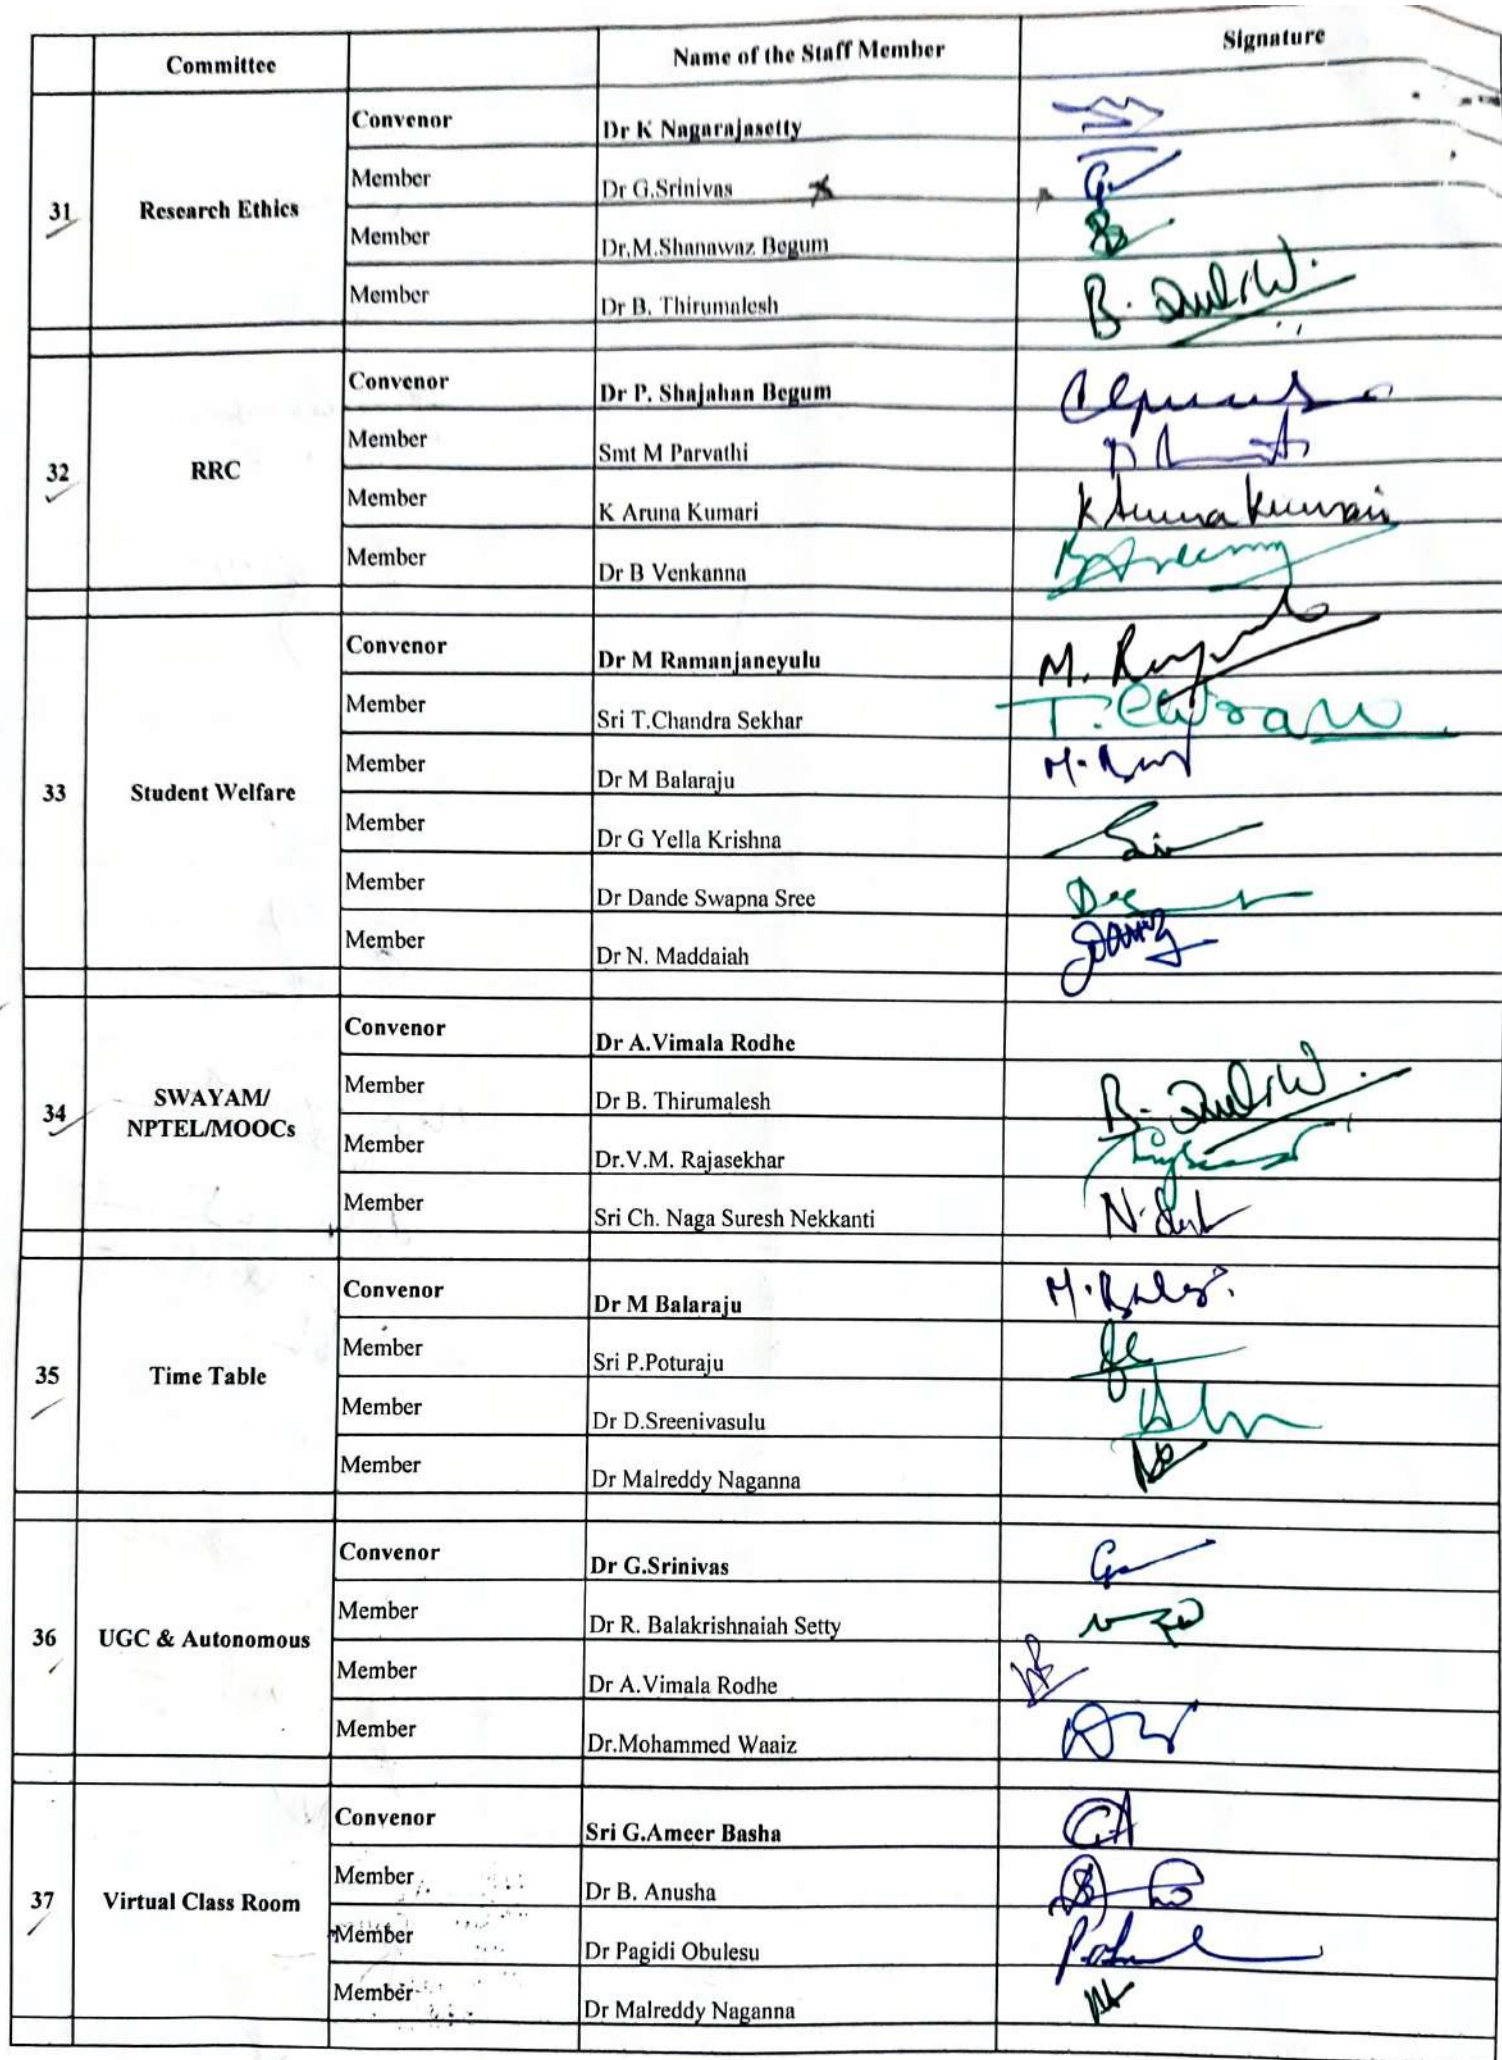 Committee Name of the Staff Member Signature
31 Research Ethics
Convenor Dr K Nagarajasetty
Member Dr G.Srinivas
Member Dr.M.Shanawaz Begum
Member Dr B. Thirumalesh
32 RRC
Convenor Dr P. Shajahan Begum
Member Smt M Parvathi
Member K Aruna Kumari K Aruna Kumari
Member Dr B Venkanna
33 Student Welfare
Convenor Dr M Ramanjaneyulu
Member Sri T.Chandra Sekhar
Member Dr M Balaraju
Member Dr G Yella Krishna
Member Dr Dande Swapna Sree
Member Dr N. Maddaiah
34 SWAYAM/
NPTEL/MOOCs
Convenor Dr A.Vimala Rodhe
Member Dr B. Thirumalesh
Member Dr.V.M. Rajasekhar
Member Sri Ch. Naga Suresh Nekkanti
35 Time Table
Convenor Dr M Balaraju
Member Sri P.Poturaju
Member Dr D.Sreenivasulu
Member Dr Malreddy Naganna
36 UGC & Autonomous
Convenor Dr G.Srinivas
Member Dr R. Balakrishnaiah Setty
Member Dr A.Vimala Rodhe
Member Dr.Mohammed Waaiz
37 Virtual Class Room
Convenor Sri G.Ameer Basha
Member Dr B. Anusha
Member Dr Pagidi Obulesu
Member Dr Malreddy Naganna